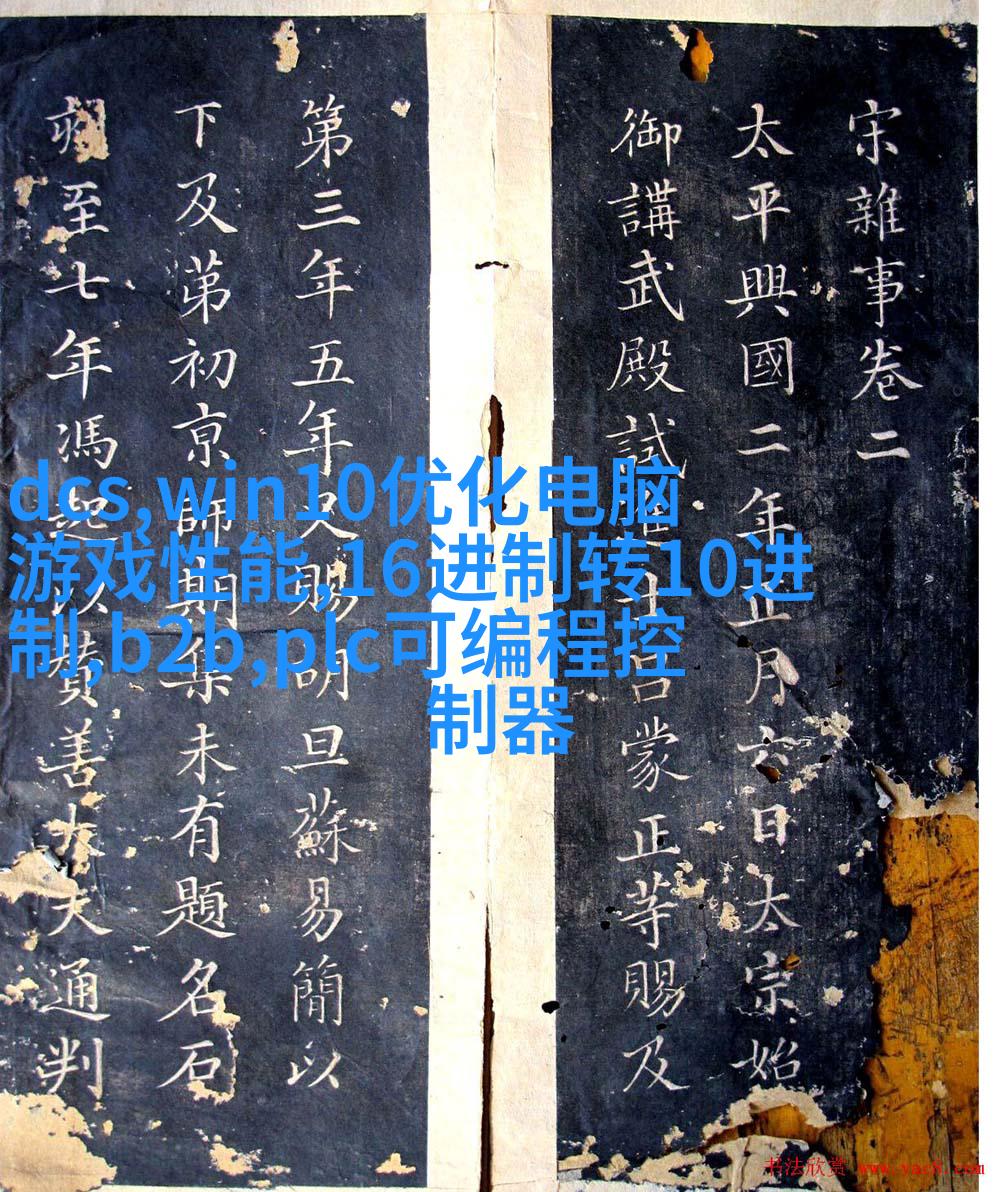 宋雜事卷二
太平興國二年正月六日太宗始
御講武殿試進士吕蒙正等賜及
第三年五年又賜明旦蘇易簡以
下及苐初亰師期集未有題名石
至七年馮起以賛善大夫通判
dcs,win10优化电脑
游戏性能,16进制转10进
制,b2b,plc可编程控
制器
书法欣赏 www.yac8.com